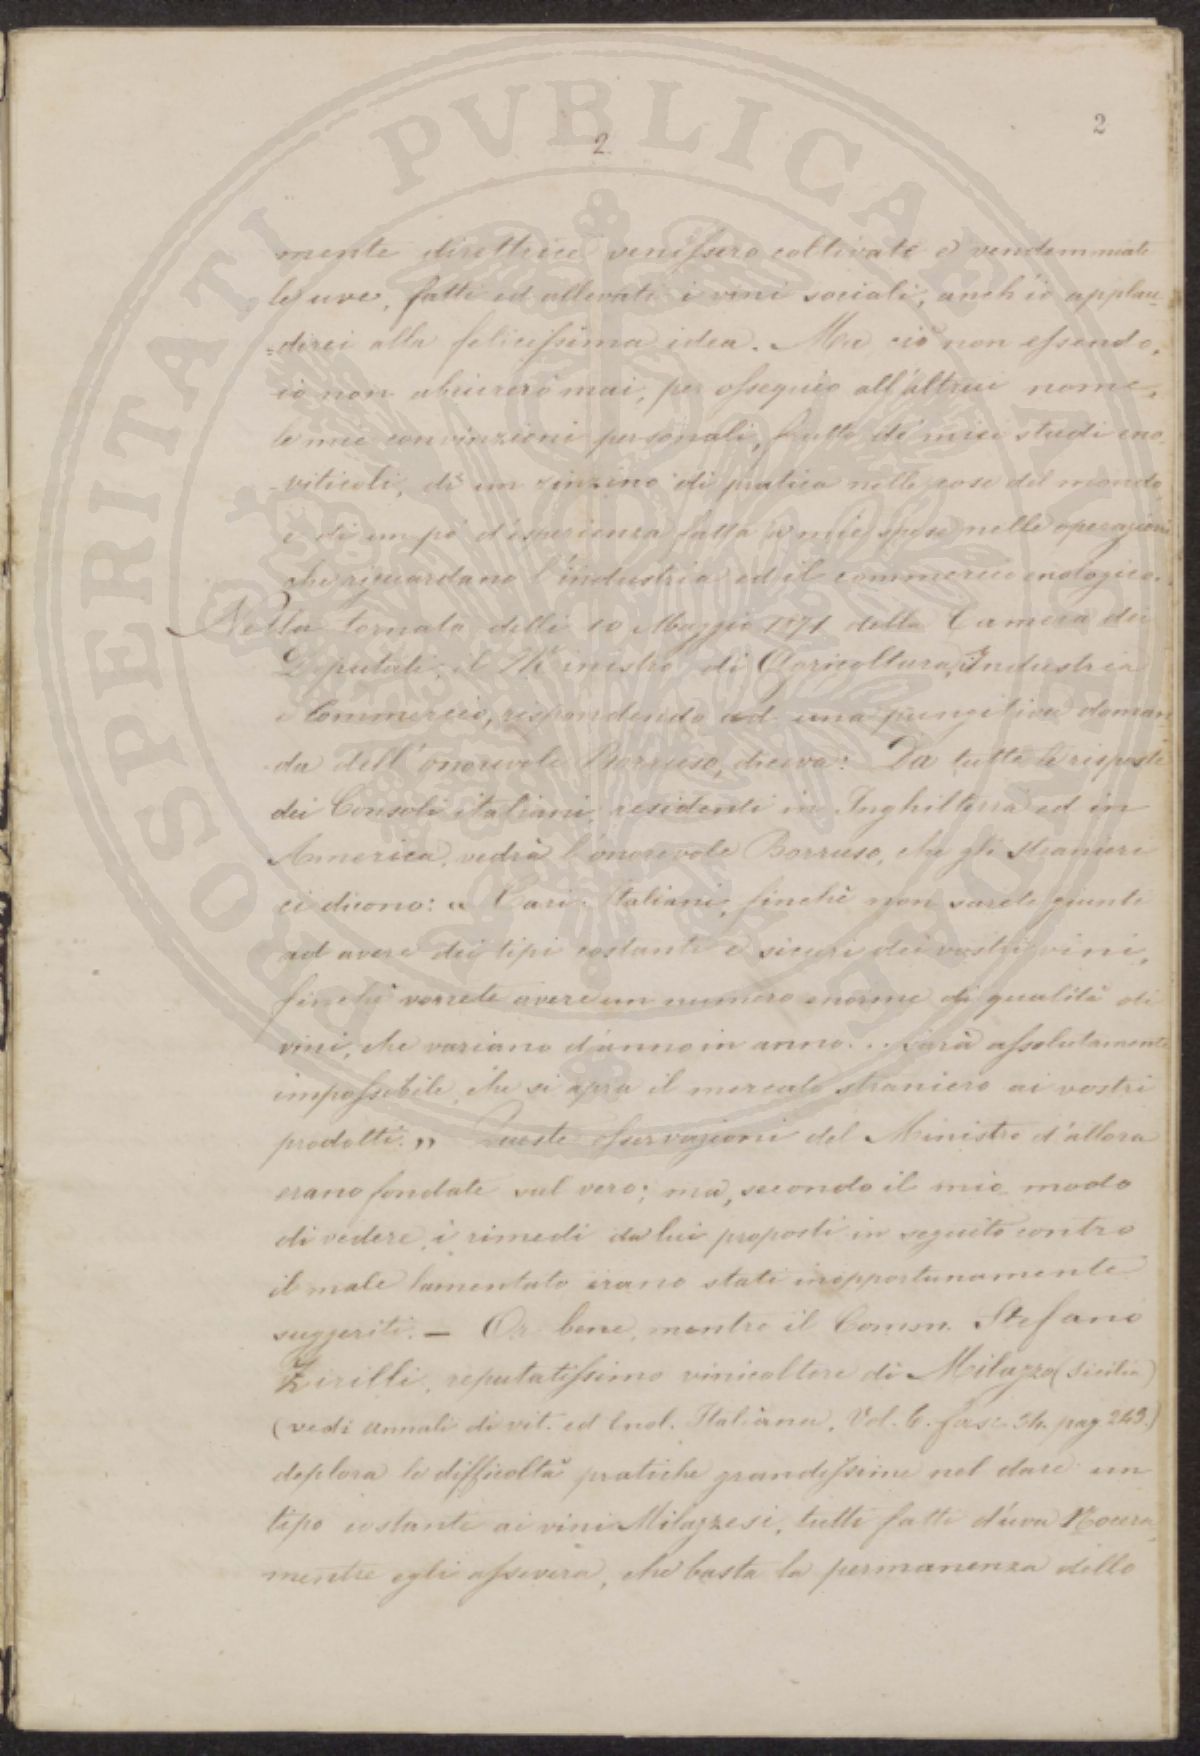 2
2
mente direttrice venissero coltivate e vendemmiate
le uve, fatti ed allevati i vini sociali, anch'io applau-
=direi alla felicissima idea. Ma ciò non essendo,
io non abiurerò mai, per ossequio all'altrui nome,
le mie convinzioni personali, frutto de' miei studi eno-
-viticoli, di un zinzino di pratica nelle cose del mondo,
e di un po' d'esperienza fatta a mie spese nelle operazioni
che riguardano l'industria ed il commercio enologico.
Nella tornata delli 10 Maggio 1871 della Camera dei
Deputati, il Ministro di Agricoltura, Industria
e Commercio, rispondendo ad una pungitiva doman-
-da dell'onorevole Borruso, diceva: Da tutte le risposte
dei Consoli italiani, residenti in Inghilterra ed in
America, vedrà l'onorevole Borruso, che gli stranieri
ci dicono: " Cari Italiani, finchè non sarete giunti
ad avere dei tipi costanti e sicuri dei vostri vini,
finchè vorrete avere un numero enorme di qualità di
vini, che variano d'anno in anno... sarà assolutamente
impossibile, che si apra il mercato straniero ai vostri
prodotti. " Queste osservazioni del Ministro d'allora
erano fondate sul vero; ma, secondo il mio modo
di vedere, i rimedi da lui proposti in seguito contro
il male lamentato erano stati inopportunamente
suggeriti. — Or bene, mentre il Comm. Stefano
Zirilli, reputatissimo vinicoltore di Milazzo (Sicilia)
(vedi Annali di vit. ed enol. Italiana, Vol. 6. fasc. 34. pag. 243.)
deplora le difficoltà pratiche grandissime nel dare un
tipo costante ai vini Milazzesi, tutti fatti d'uva Nocera,
mentre egli assevera, che basta la permanenza dello
PROSPERITATI PUBLICAE AUGENDAE